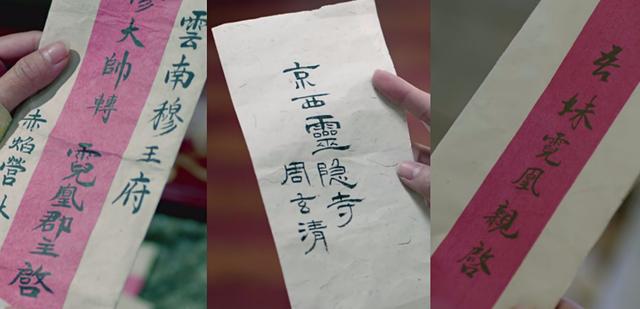 雲南穆王府
穆大帥轉霓凰郡主啓
赤焰營
京西靈隐寺
周玄清
吾妹霓凰親啓